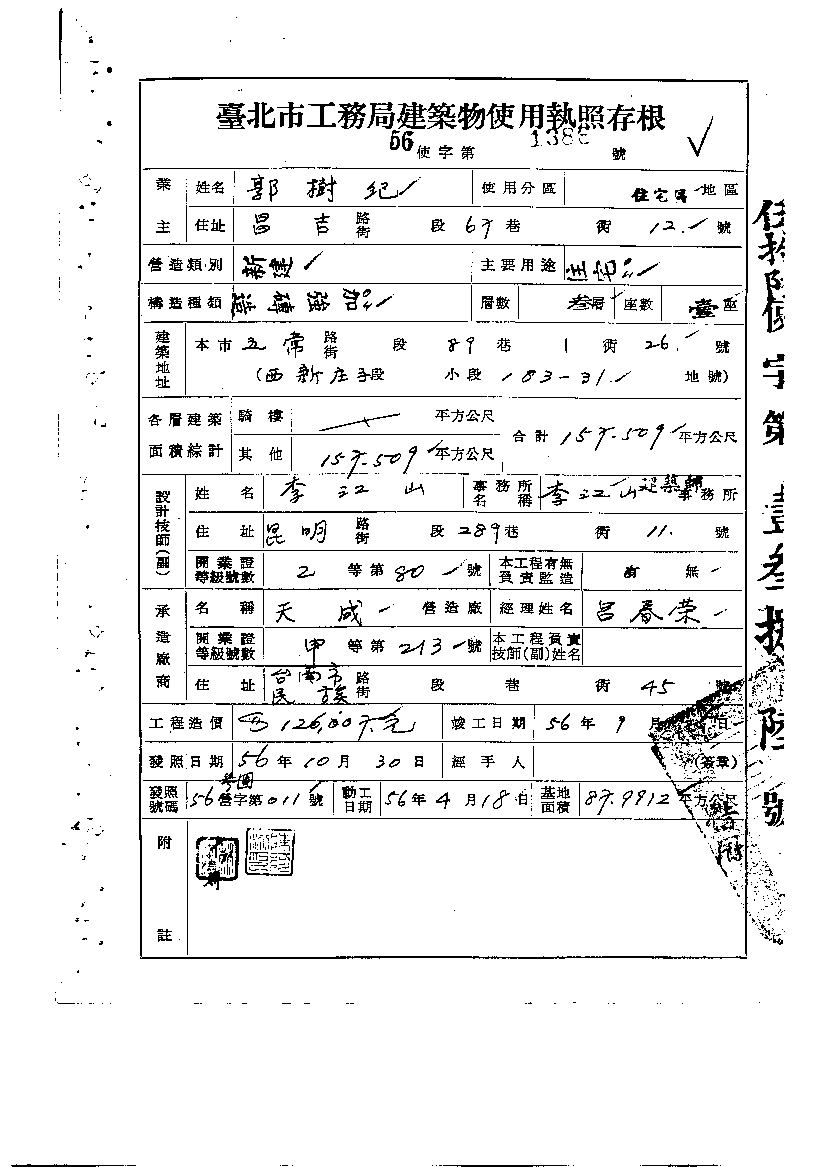 臺北市工務局建築物使用執照存根
56使字第 138 號
業主 姓名 郭樹紀 使用分區 住宅區 地區
住址 昌吉 路街 段 67 巷 衖 12. 號
營造類別 新建 主要用途 住宅
構造種類 加強磚造 層數 叁層 座數 壹座
建築地址 本市 五常 路街 段 89 巷 1 衖 26. 號
(西新庄子段 小段 183-31. 地號)
各層建築面積綜計 騎樓 平方公尺 合計 157.509 平方公尺
其他 157.509 平方公尺
設計技師(副) 姓名 李江山 事務所名稱 李江山建築師事務所
住址 昆明 路街 段 289 巷 衖 11. 號
開業證等級號數 2 等第 80 號 本工程有無負責監造 有 無
承造廠商 名稱 天成 營造廠 經理姓名 呂春荣
開業證等級號數 甲 等第 213 號 本工程負責技師(副)姓名
住址 台南市民族 路街 段 巷 衖 45 號
工程造價 竣工日期 56年9月 日
發照日期 56年10月30日 經手人 (簽章)
發照號碼 56營字第011號 動工日期 56年4月18日 基地面積 87.9912 平方公尺
附註
伍拾陸使字第壹叁捌陸號